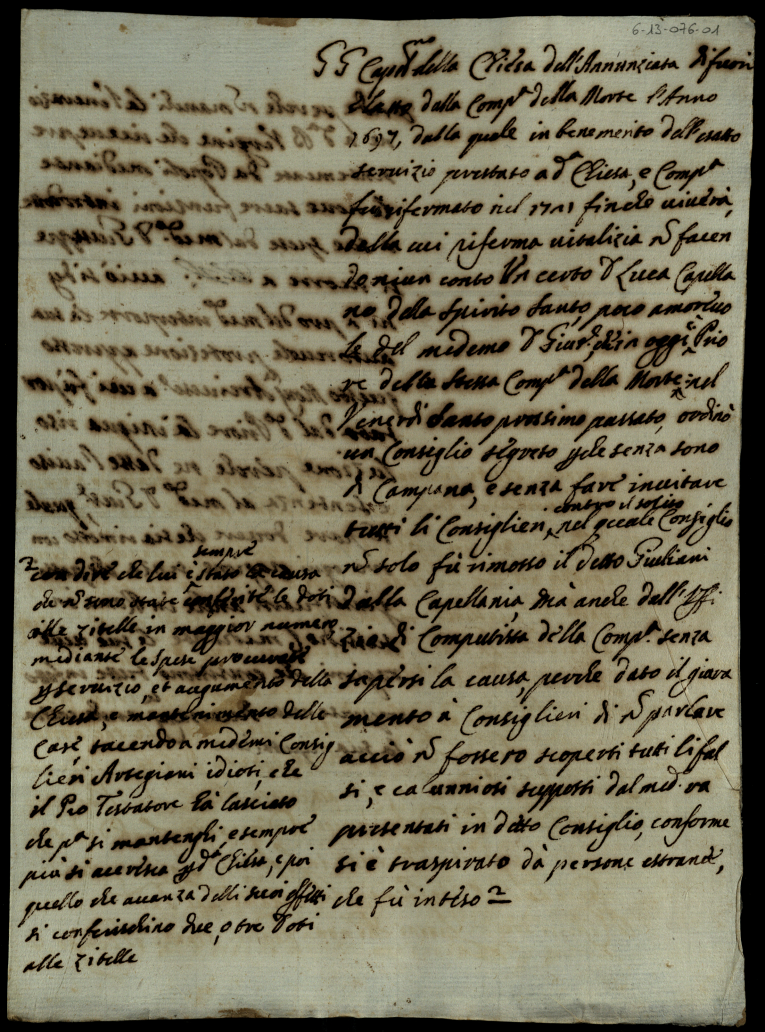 6-13-076-01
Capp.no della Chiesa dell'Annunziata di fuori
dalla Comp.a della Morte l'Anno
1697, dalla quale in benemerito dell'esatto
servizio prestato a d.a Chiesa, e Comp.a
fu rifermato nel 1721 finche viverà,
dalla cui riferma vitalizia ñ facen
do niun conto Un certo D. Luca Capella
no dello Spirito Santo, poco amorevo
le del medemo D. Giu: oggi Prio
re della stessa Comp.a della Morte, nel
Venerdi Santo prossimo passato, ordinò
un Consiglio segreto senza sono
di Campana, e senza fare invitare
tutti li Consiglieri, contro il solito nel quale Consiglio
ñ solo fù rimosso il detto Giuliani
dalla Capellania, mà anche dall'Uffi
zio di Computista della Comp.a senza
sapersi la causa, perche dato il giura
mento à Consiglieri di ñ parlare
acciò ñ fossero scoperti tutti li fal
si, e calunniosi supposti dal med.o ra
presentati in detto Consiglio, conforme
si è traspirato da persone estranee,
che fù inteso
con dire che lui è sempre stato la causa
che ñ sono state conferite le Doti
alle zitelle in maggior numero
mediante le spese procurate
servizio, et augumento della
Chiesa, e mantenimento delle
Case, tacendo a medemi Consig
lieri Artegiani idioti, che
il Pio Testatore hà lasciato
che p.a si mantenghi, e sempre
più si accresca d.a Chiesa, e poi
quello che avanza delli suoi effetti
si conferischino due, o tre Doti
alle zitelle